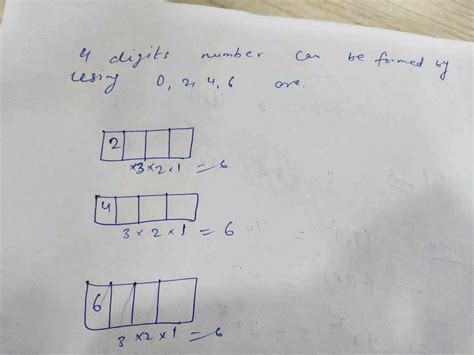 4 digits number can be formed by
using 0, 2, 4, 6 are.
2
×3×2×1 = 6
4
3 × 2 × 1 = 6
6
3 × 2 × 1 = 6